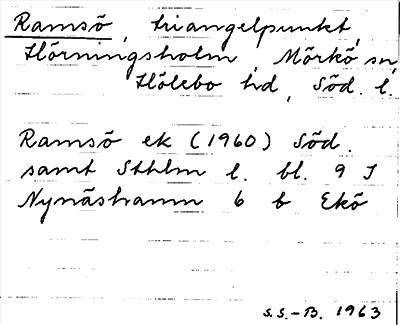 Ramsö, triangelpunkt,
Hörningsholm, Mörkö sn,
Hölebo hd, Söd. l.
Ramsö ek (1960) Söd.
samt Sthlm l. bl. 9 I
Nynäshamn 6 b Ekö
S.S.-B. 1963